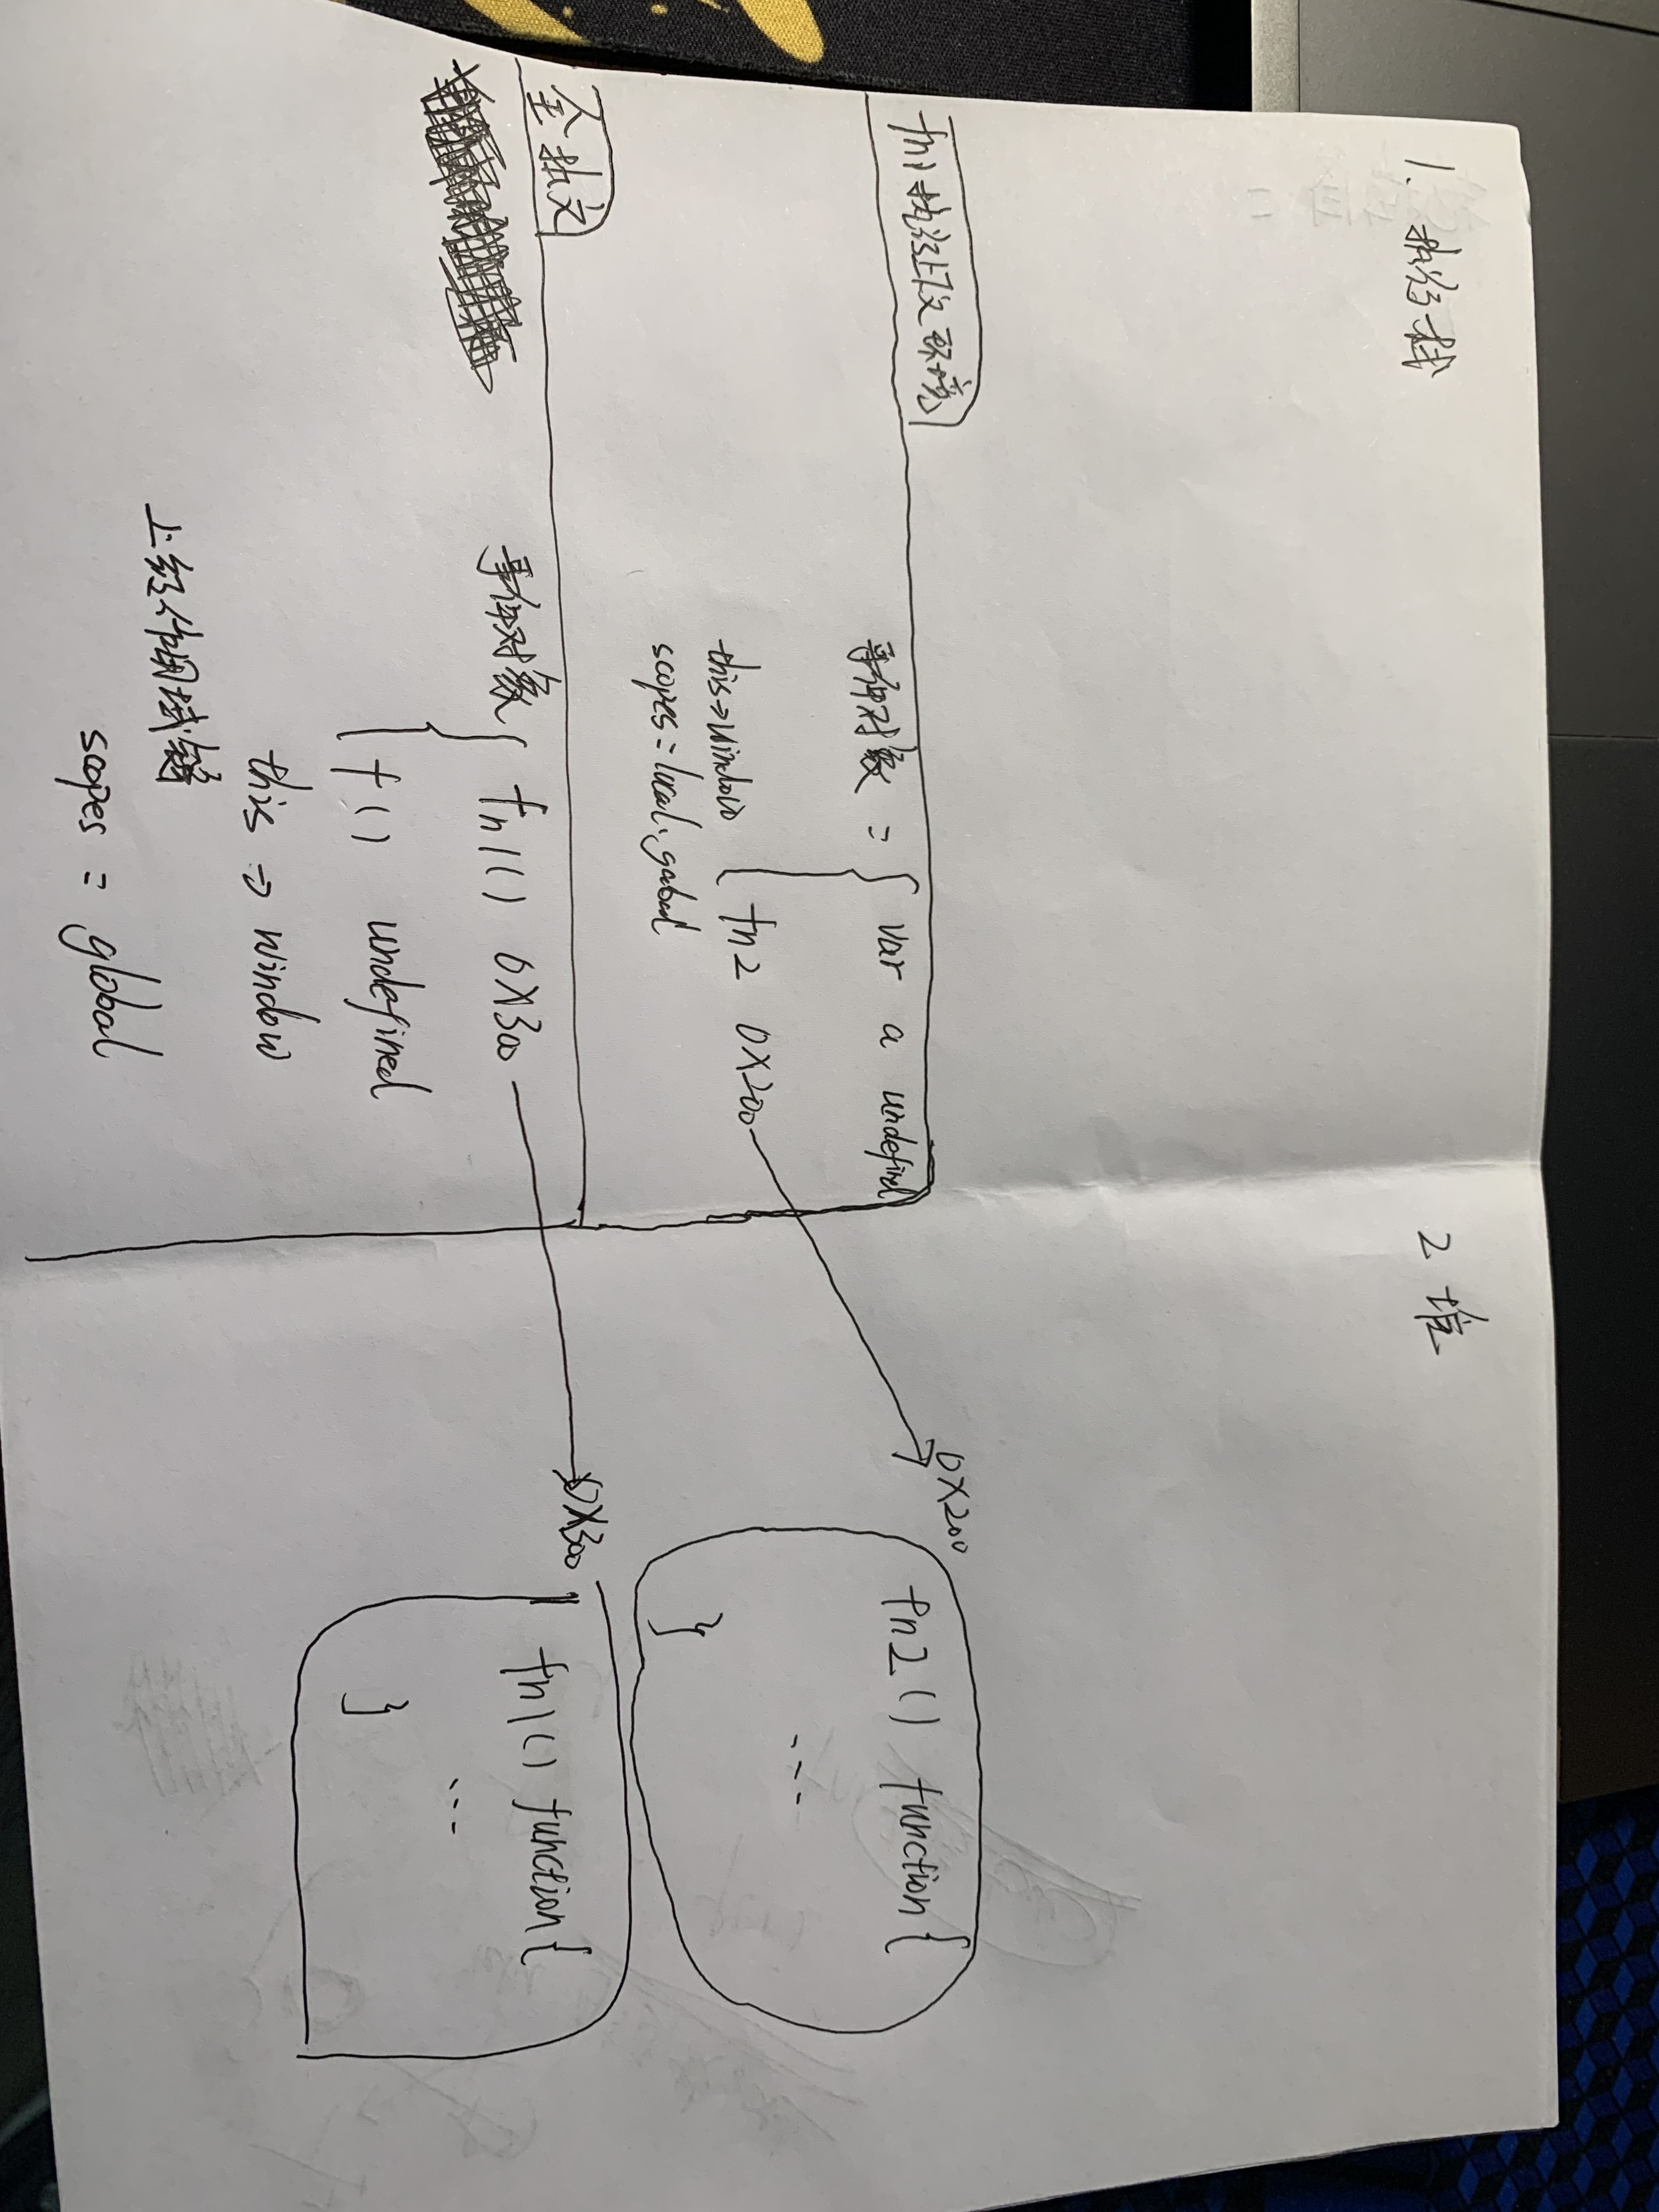 1. 执行栈
2 堆
fn1执行上下文环境
= { var a undefined
fn2 0X200
this→window
scopes = local.
全执文
{ fn1() 0X300
f() undefined
this ⇒ window
上级作用域链
scopes = global
0X200
fn2() function{
...
}
0X300
fn1() function{
...
}